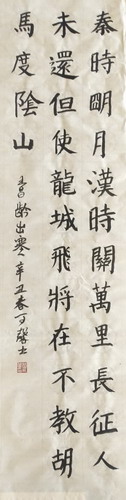 秦時明月漢時關萬里長征人
未還但使龍城飛將在不教胡
馬度陰山
昌齡出塞 辛丑春